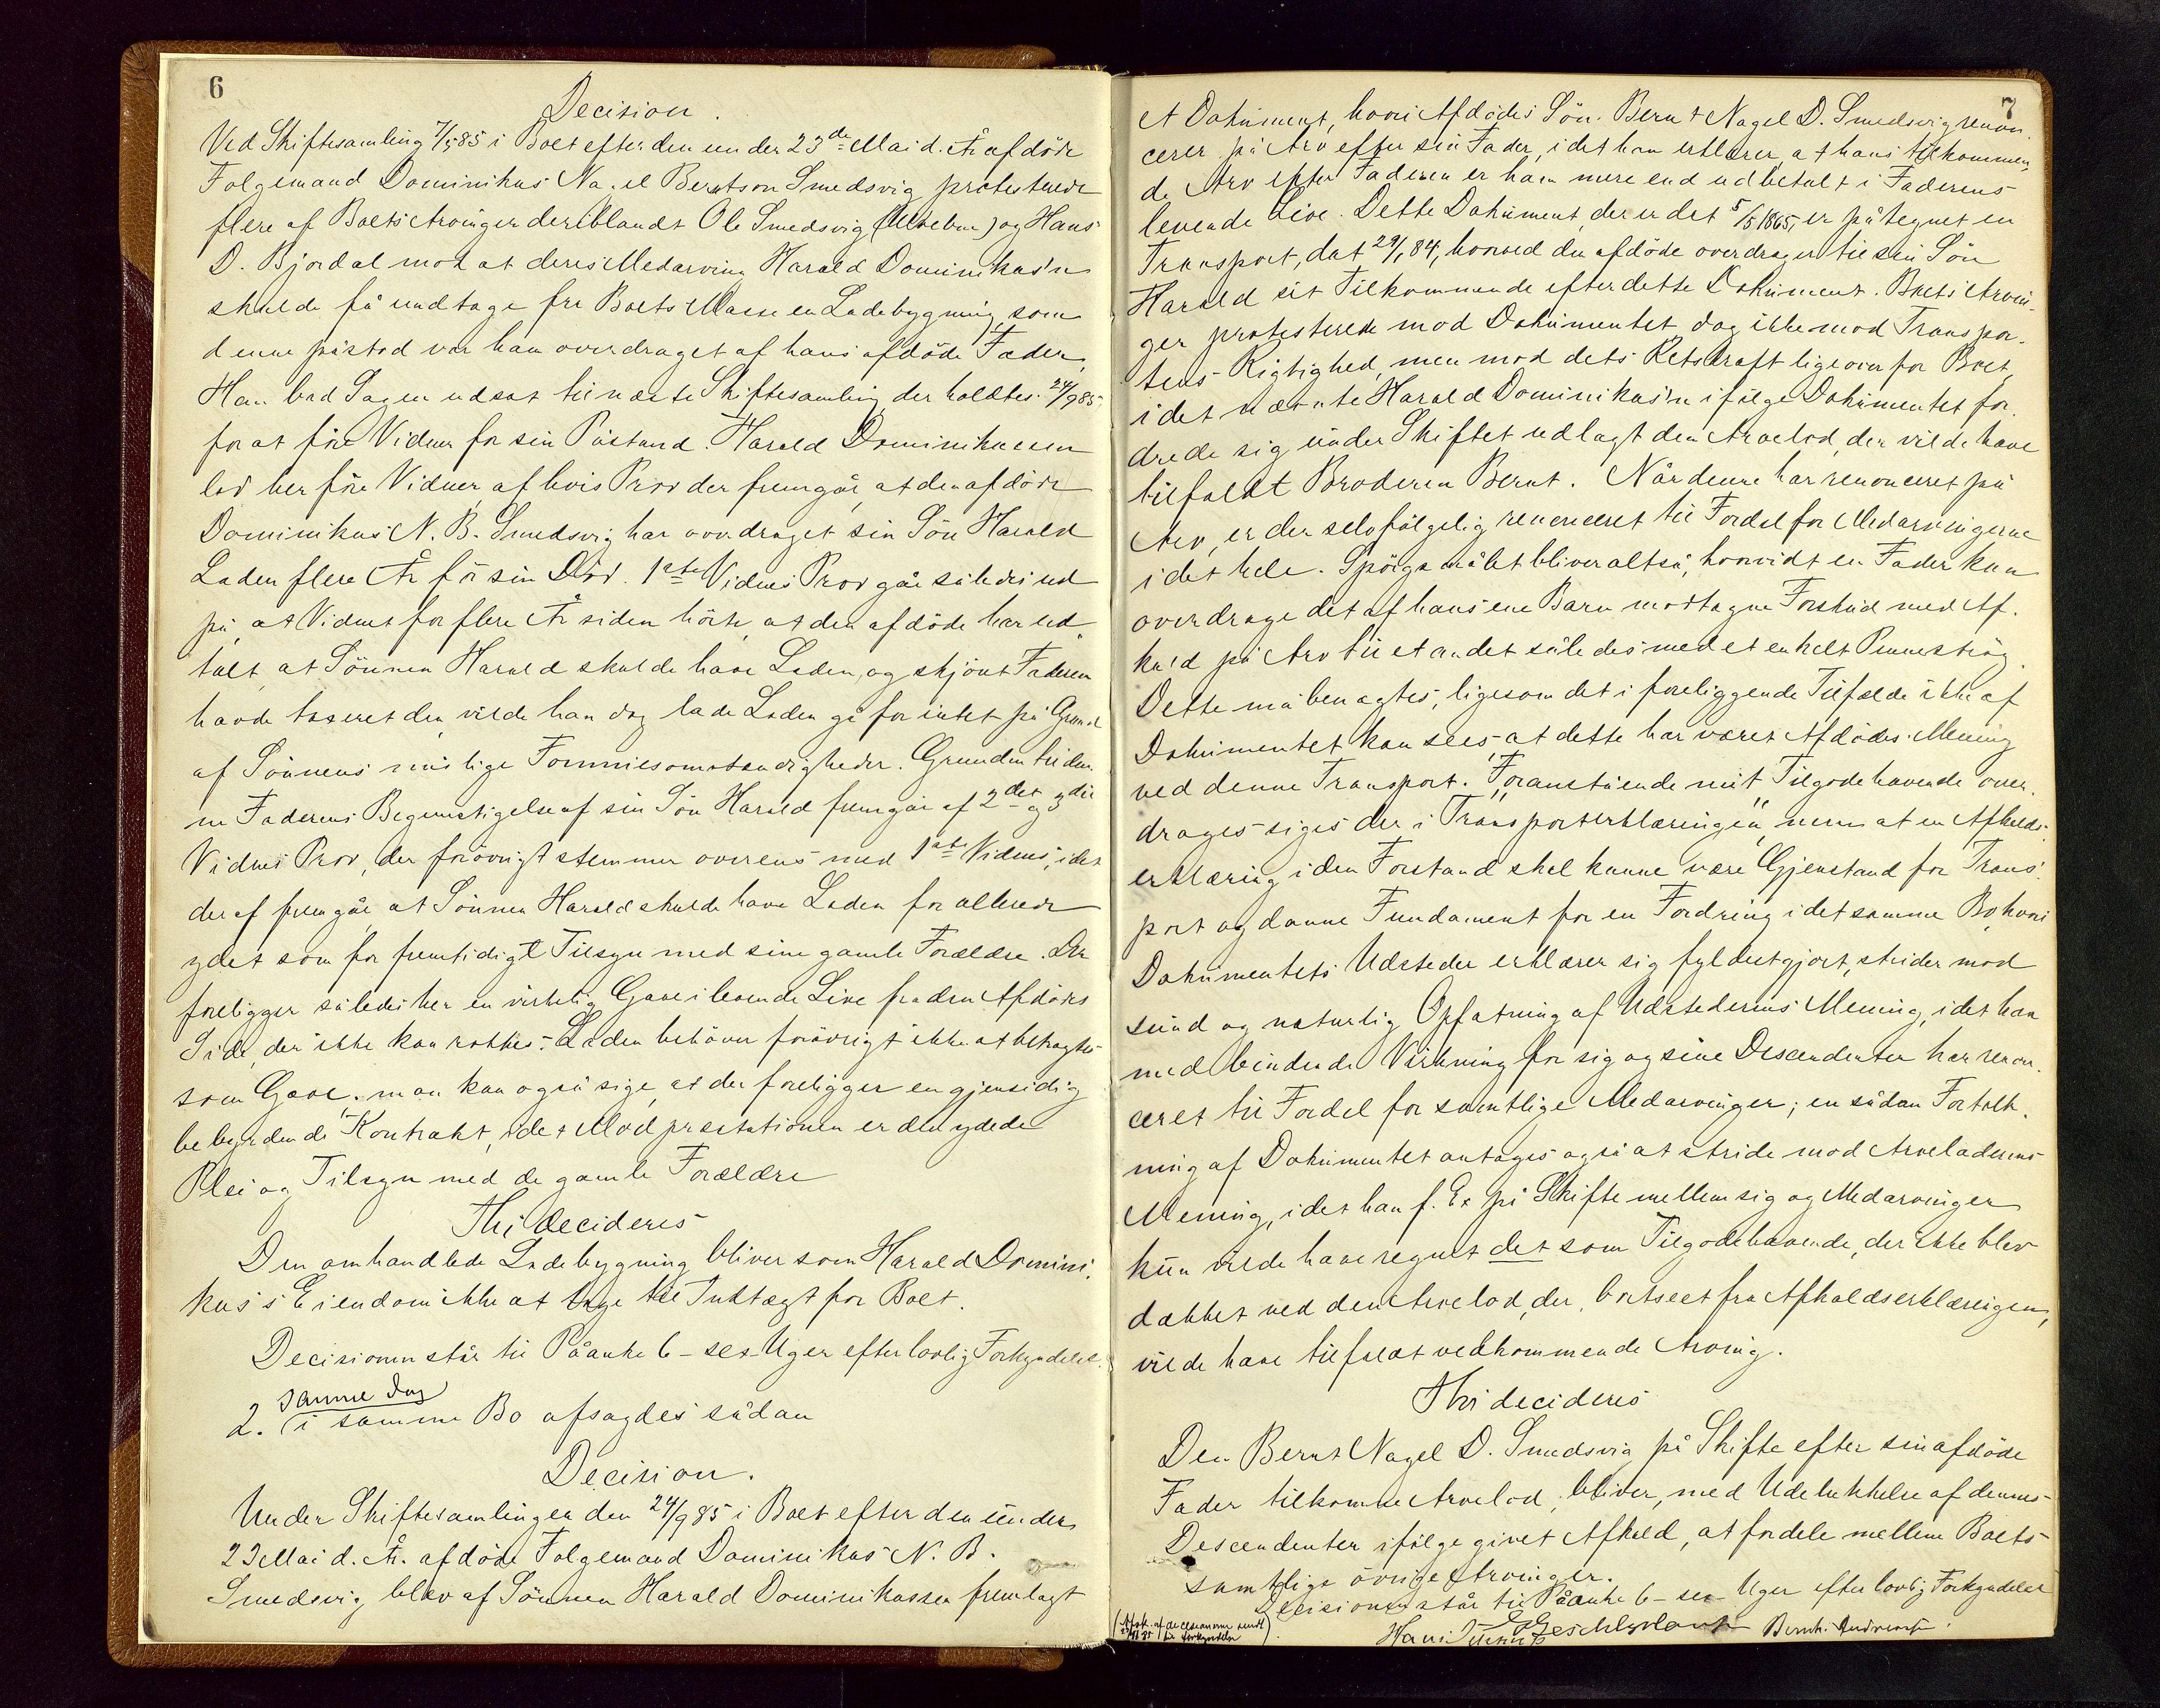 6
Decision.
Ved Skiftesamling 7/585 i Boet efter den under 23de Mai d. År afdöde
Folgemand Dominikus Nagel Berntson Smedsvig protesterede
flere af Boets Arvinger deriblandt Ole Smedsvig og Hans
D. Bjordal mod at deres Medarving Harald Dominikas'n
skulde få undtage fra Boets Masse en Ladebygning, som
denne påstod var ham overdraget af hans afdöde Fader,
Han bad Sagen udsat til næste Skiftesamling der holdtes 24/985,
for at före Vidner for sin Påstand. Harald Dominikussen
lod her före Vidner, af hvis Prov der fremgår, at den afdöde
Dominikus N. B. Smedsvig har overdraget sin Sön Harald
Laden flere År för sin Död. 1ste Vidnes Prov går således ud
på, at Vidnet for flere År siden hörte, at den afdöde har ud-
talt, at Sönnen Harald skulde have Laden, og skjönt Faderen
havde taxeret den, vilde han dog lade Laden gå for intet på Grund
af Sönnens Formuesomstændigheder. Grunden til den-
ne Faderens Begunstigelse af sin Sön Harald fremgår af 2det og 3die
Vidnes Prov, der forövrigt stemmer overens med 1ste Vidnes, idet
deraf fremgår, at Sönnen Harald skulde have Laden for allerede
ydet som for fremtidigt Tilsyn med sine gamle Forældre. Der
foreligger således her en virkelig Gave i levende Live fra den Afdödes
Side, der ikke kan rokkes. Laden behöver forövrigt ikke at betragtes
som Gave; man kan også sige, at der foreligger en gjensidig
bebyrdende Kontrakt, idet Modpræstationen er den ydede
Plei og Tilsyn med de gamle Forældre
Thi decideres
Den omhandlede Ladebygning bliver som Harald Domini-
kus's Eiendom ikke at tage til Indtægt for Boet.
Decisionen står til Påanke 6 - sex - Uger efter lovlig Forkyndelse.
samme Dag
2. i samme Bo afsagdes sådan
Decision.
Under Skiftesamlingen den 24/985 i Boet efter den under
23 Mai d. År. afdöde Folgemand Dominikus N. B.
Smedsvig blev af Sönnen Harald Dominikussen fremlagt
7
et Dokument, hvori Afdödes Sön Bernt Nagel D. Smedsvig renon-
cerer på Arv efter sin Fader, idet han erklærer, at hans tilkommen-
de Arv efter Faderen er ham mere end udbetalt i Faderens
levende Live. Dette Dokument, der er det 5/5 1865, er påtegnet en
Transport, dat 29/184, hvorved den afdöde overdrager til sin Sön
Harald sit Tilkommende efter dette Dokument. Boets Arvin-
ger protesterede mod Dokumentet, dog ikke mod Transpor-
tens Rigtighed, men mod dets Retskraft ligeoverfor Boet,
idet nævnte Harald Dominikus'n ifölge Dokumentet for-
drede sig under Skiftet udlagt den Arvelod, der vilde have
tilfaldt Broderen Bernt. Når denne har renonceret på
Arv, er der selvfölgelig renonceret til Fordel for Medarvingerne
i det hele. Spörgsmålet bliver altså, hvorvidt en Fader kan
overdrage det af hans ene Barn modtagne Forskud med Af-
kald på Arv til et andet således med et enkelt Penneströg.
Dette må benægtes, ligesom det i foreliggende Tilfælde ikke af
Dokumentet kan sees, at dette har været Afdödes Mening
ved denne Transport. "Foranstående mit Tilgodehavende over-
drages" siges der i Transporterklæringen, men at en Afkalds-
erklæring i den Forstand skal kunne være Gjenstand for Trans-
port og danne Fundament for en Fordring i det samme Bo, hvori
Dokumentets Udsteder erklærer sig fyldestgjort, strider mod
sund og naturlig Opfatning af Udstederens Mening, idet han
med bindende Virkning for sig og sine Descendenter har renon-
ceret til Fordel for samtlige Medarvinger; en sådan Fortolk-
ning af Dokumentet antages også at stride mod Arveladerens
Mening, idet han f. Ex på Skifte mellem sig og Medarvinger
kun vilde have regnet det som Tilgodehavende, der ikke blev
dækket ved den Arvelod, der, bortseet fra Afkaldserklæringen,
vilde have tilfaldt vedkommende Arving.
Thi decideres
Den Bernt Nagel D. Smedsvig på Skifte efter sin afdöde
Fader tilkomne Arvelod, bliver, med Udelukkelse af dennes
Descendenter ifölge givet Afkald, at fordele mellem Boets
samtlige övrige Arvinger.
Decisionen står til Påanke 6 - sex - Uger efter lovlig Forkyndelse
(Afsk. af decisionerne sendt
til forkyndelse)
Hans